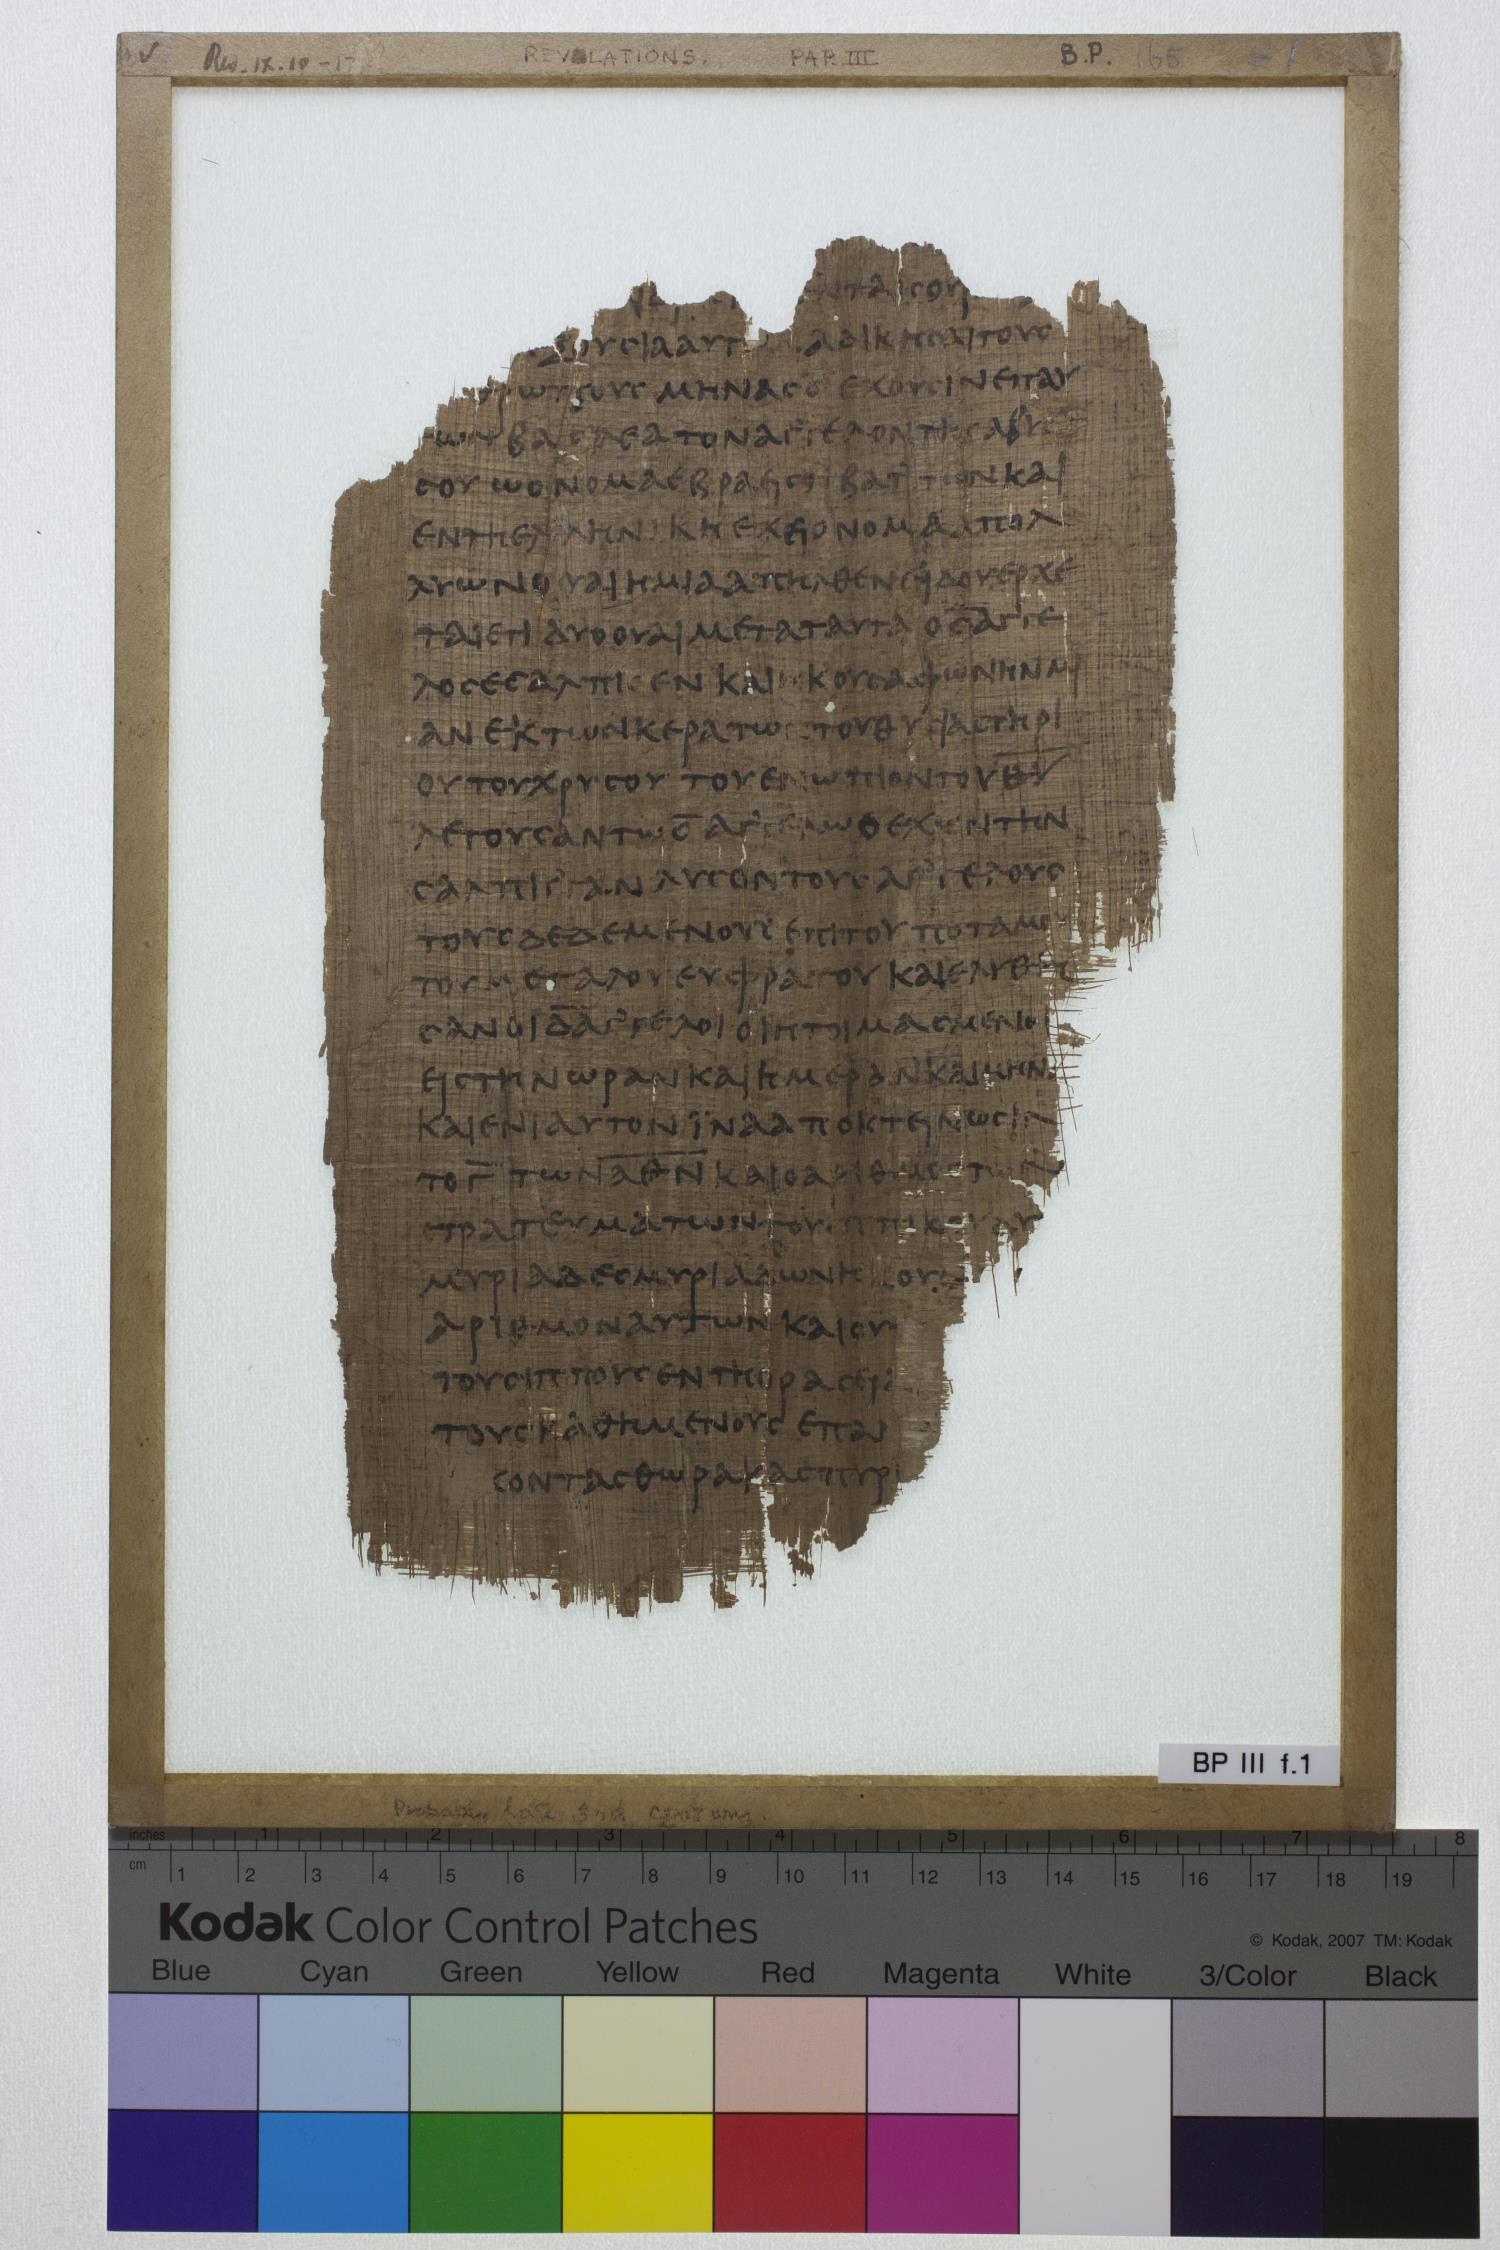 Rev. IX. 10-17
REVELATIONS.
PAP. III
B.P.
ΝΤΑΙϹΟΥ
ΞΟΥϹΙΑΑΥΤ ΑΔΙΚΗϹΑΙΤΟΥϹ
ΜΗΝΑϹ Ε̅ ΕΧΟΥϹΙΝΕΠΑΥ
ΤΩΝΒΑϹΙΛΕΑΤΟΝΑΓ᾽ΓΕΛΟΝΤΗϹΑΒΥϹ
ϹΟΥΩΟΝΟΜΑΕΒΡΑΕΙϹΤΙΒΑΤ ΤΩΝΚΑΙ
ΕΝΤΗΕΛΛΗΝΙΚΗΕΧΕΙΟΝΟΜΑΑΠΟΛ
ΛΥΩΝΟΥΑΙΗΜΙΑΑΠΗΛΘΕΝΕΙΔΟΥΕΡΧΕ
ΤΑΙΕΤΙΔΥΟΟΥΑΙΜΕΤΑΤΑΥΤΑΟϚ̅ΑΓ᾽ΓΕ
ΛΟϹΕϹΑΛΠΙϹΕΝΚΑΙΗΚΟΥϹΑΦΩΝΗΝΜΙ
ΑΝΕΚ᾽ΤΩΝΚΕΡΑΤΩΝΤΟΥΘΥϹΙΑϹΤΗΡΙ
ΟΥΤΟΥΧΡΥϹΟΥΤΟΥΕΝΩΠΙΟΝΤΟΥΘ̅Υ̅
ΛΕΓΟΥϹΑΝΤΩϚ̅ΑΓ᾽ΓΕΛΩΟΕΧΩΝΤΗΝ
ϹΑΛΠΙΓ᾽ΓΑΝΛΥϹΟΝΤΟΥϹΑΓ᾽ΓΕΛΟΥϹ
ΤΟΥϹΔΕΔΕΜΕΝΟΥϹΕΠΙΤΟΥΠΟΤΑΜΟΥ
ΤΟΥΜΕΓΑΛΟΥΕΥΦΡΑΤΟΥΚΑΙΕΛΥΘΗ
ϹΑΝΟΙΔ̅ΑΓ᾽ΓΕΛΟΙΟΙΗΤΟΙΜΑϹΜΕΝΟΙ
ΕΙϹΤΗΝΩΡΑΝΚΑΙΗΜΕΡΑΝΚΑΙΜΗΝΑ
ΚΑΙΕΝΙΑΥΤΟΝΪΝΑΑΠΟΚΤΕΙΝΩϹΙΝ
ΤΟΓ̅ΤΩΝΑ̅Θ̅Ν̅ΚΑΙΟΑΡΙΘΜΟϹΤΩΝ
ϹΤΡΑΤΕΥΜΑΤΩΝΤΟΥΙΠΠΙΚΟΥΔΥ
ΜΥΡΙΑΔΕϹΜΥΡΙΑΔΩΝΗ ΟΥϹ
ΑΡΙΘΜΟΝΑΥΤΩΝΚΑΙΟΥ
ΤΟΥϹΙΠΠΟΥϹΕΝΤΗΟΡΑϹΕΙ
ΤΟΥϹΚΑΘΗΜΕΝΟΥϹΕΠΑΥ
ϹΟΝΤΑϹΘΩΡΑΚΑϹΠΥΡΙ
BP III f.1
Probably late 3rd century.
inches 1 2 3 4 5 6 7 8
cm 1 2 3 4 5 6 7 8 9 10 11 12 13 14 15 16 17 18 19
Kodak Color Control Patches
© Kodak, 2007 TM: Kodak
Blue Cyan Green Yellow Red Magenta White 3/Color Black